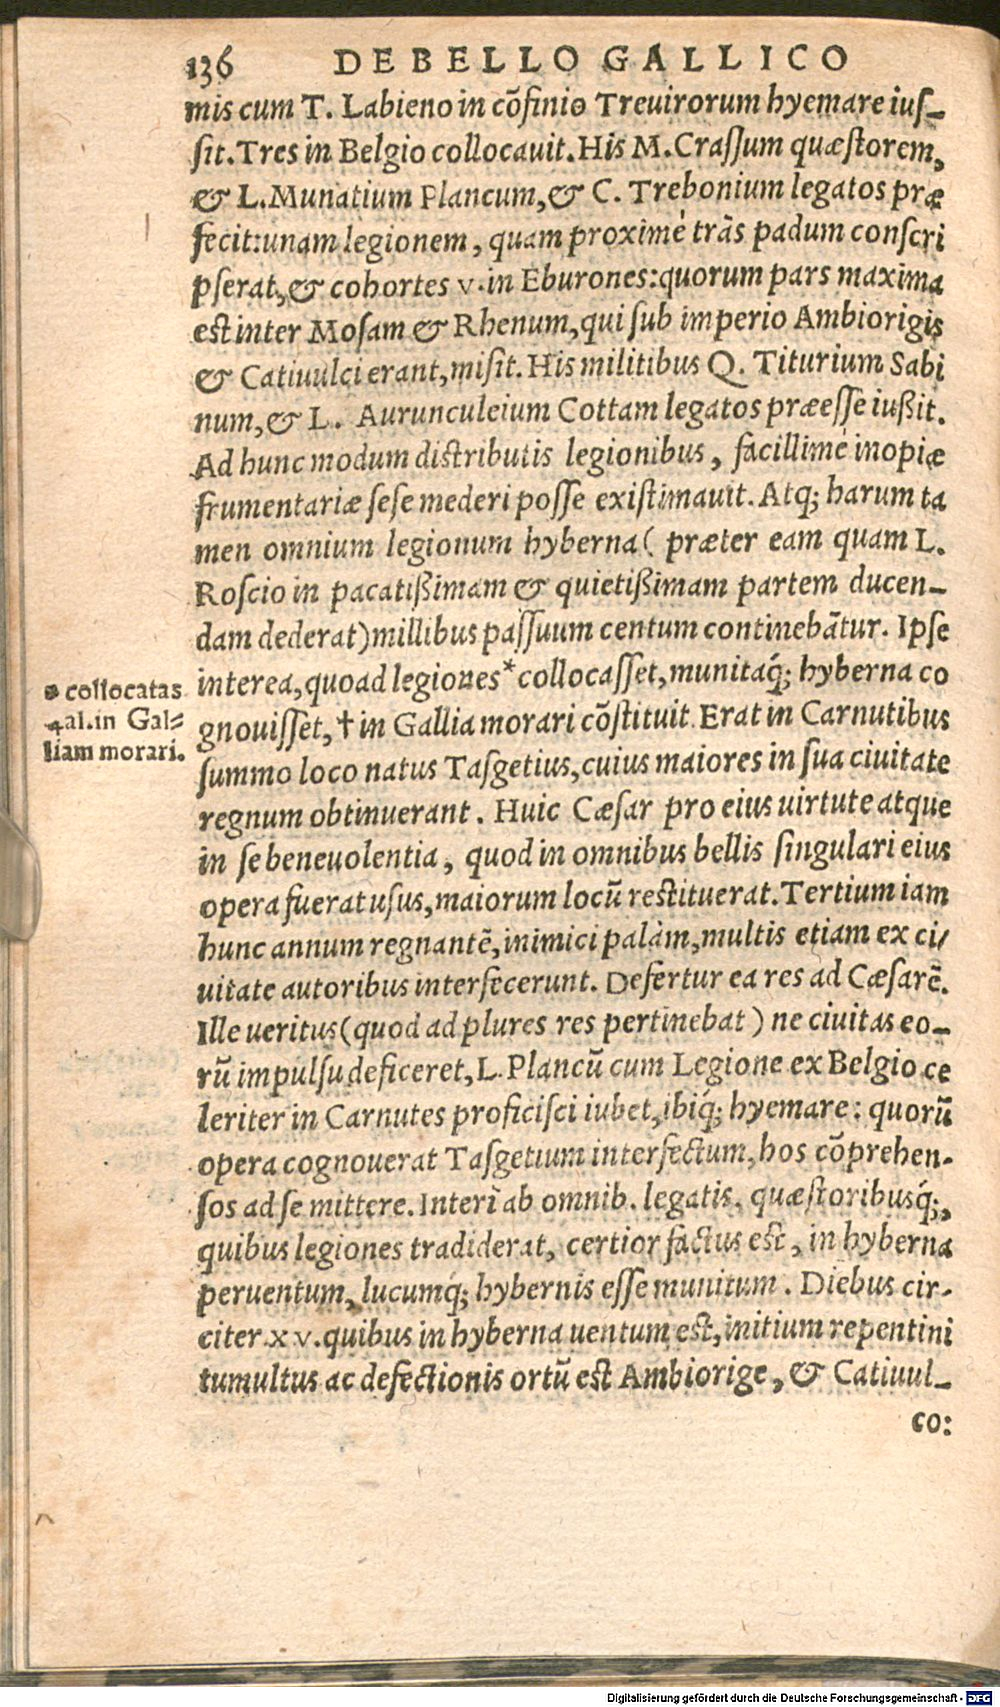 136 DE BELLO GALLICO
mis cum T. Labieno in cõfinio Treuirorum hyemare iuſ-
ſit. Tres in Belgio collocauit. His M. Craſſum quæſtorem,
& L. Munatium Plancum, & C. Trebonium legatos præ
fecit: unam legionem, quam proximè trãs padum conſcri
pſerat, & cohortes v. in Eburones: quorum pars maxima
eſt inter Moſam & Rhenum, qui ſub imperio Ambiorigis
& Catiuulci erant, miſit. His militibus Q. Titurium Sabi
num, & L. Aurunculeium Cottam legatos præeſſe iußit.
Ad hunc modum diſtributis legionibus, facillimè inopiæ
frumentariæ ſeſe mederi poſſe exiſtimauit. Atq; harum ta
men omnium legionum hyberna ( præter eam quam L.
Roſcio in pacatißimam & quietißimam partem ducen-
dam dederat) millibus paſſuum centum continebãtur. Ipſe
interea, quoad legiones * collocaſſet, munitaq́; hyberna co
gnouiſſet, † in Gallia morari cõſtituit. Erat in Carnutibus
ſummo loco natus Taſgetius, cuius maiores in ſua ciuitate
regnum obtinuerant. Huic Cæſar pro eius uirtute atque
in ſe beneuolentia, quod in omnibus bellis ſingulari eius
opera fuerat uſus, maiorum locũ reſtituerat. Tertium iam
hunc annum regnantẽ, inimici palàm, multis etiam ex ci/
uitate autoribus interfecerunt. Defertur ea res ad Cæſarẽ.
Ille ueritus (quod ad plures res pertinebat) ne ciuitas eo-
rũ impulſu deficeret, L. Plancũ cum Legione ex Belgio ce
leriter in Carnutes proficiſci iubet, ibiq́; hyemare: quorũ
opera cognouerat Taſgetium interfectum, hos cõprehen-
ſos ad ſe mittere. Interĩ ab omnib. legatis, quæſtoribusq́;,
quibus legiones tradiderat, certior factus eſt, in hyberna
peruentum, lucumq́; hybernis eſſe munitum. Diebus cir-
citer xv. quibus in hyberna uentum eſt, initium repentini
tumultus ac defectionis ortũ eſt Ambiorige, & Catiuul-
co:
* collocatas
† al. in Gal-
liam morari.
Digitalisierung gefördert durch die Deutsche Forschungsgemeinschaft - DFG